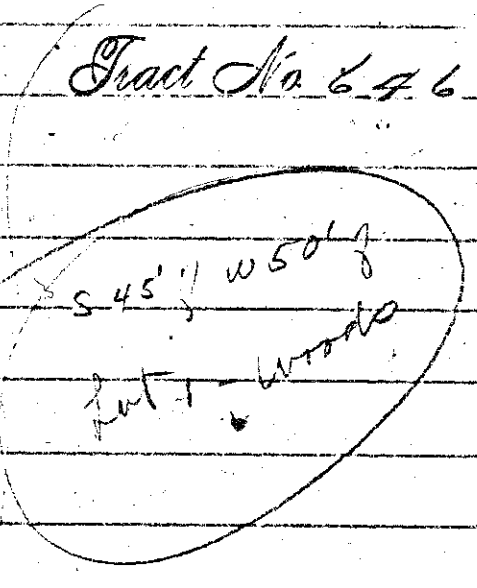 Tract No. 646
S 45' of W 50' of
Lot 1 - Woods